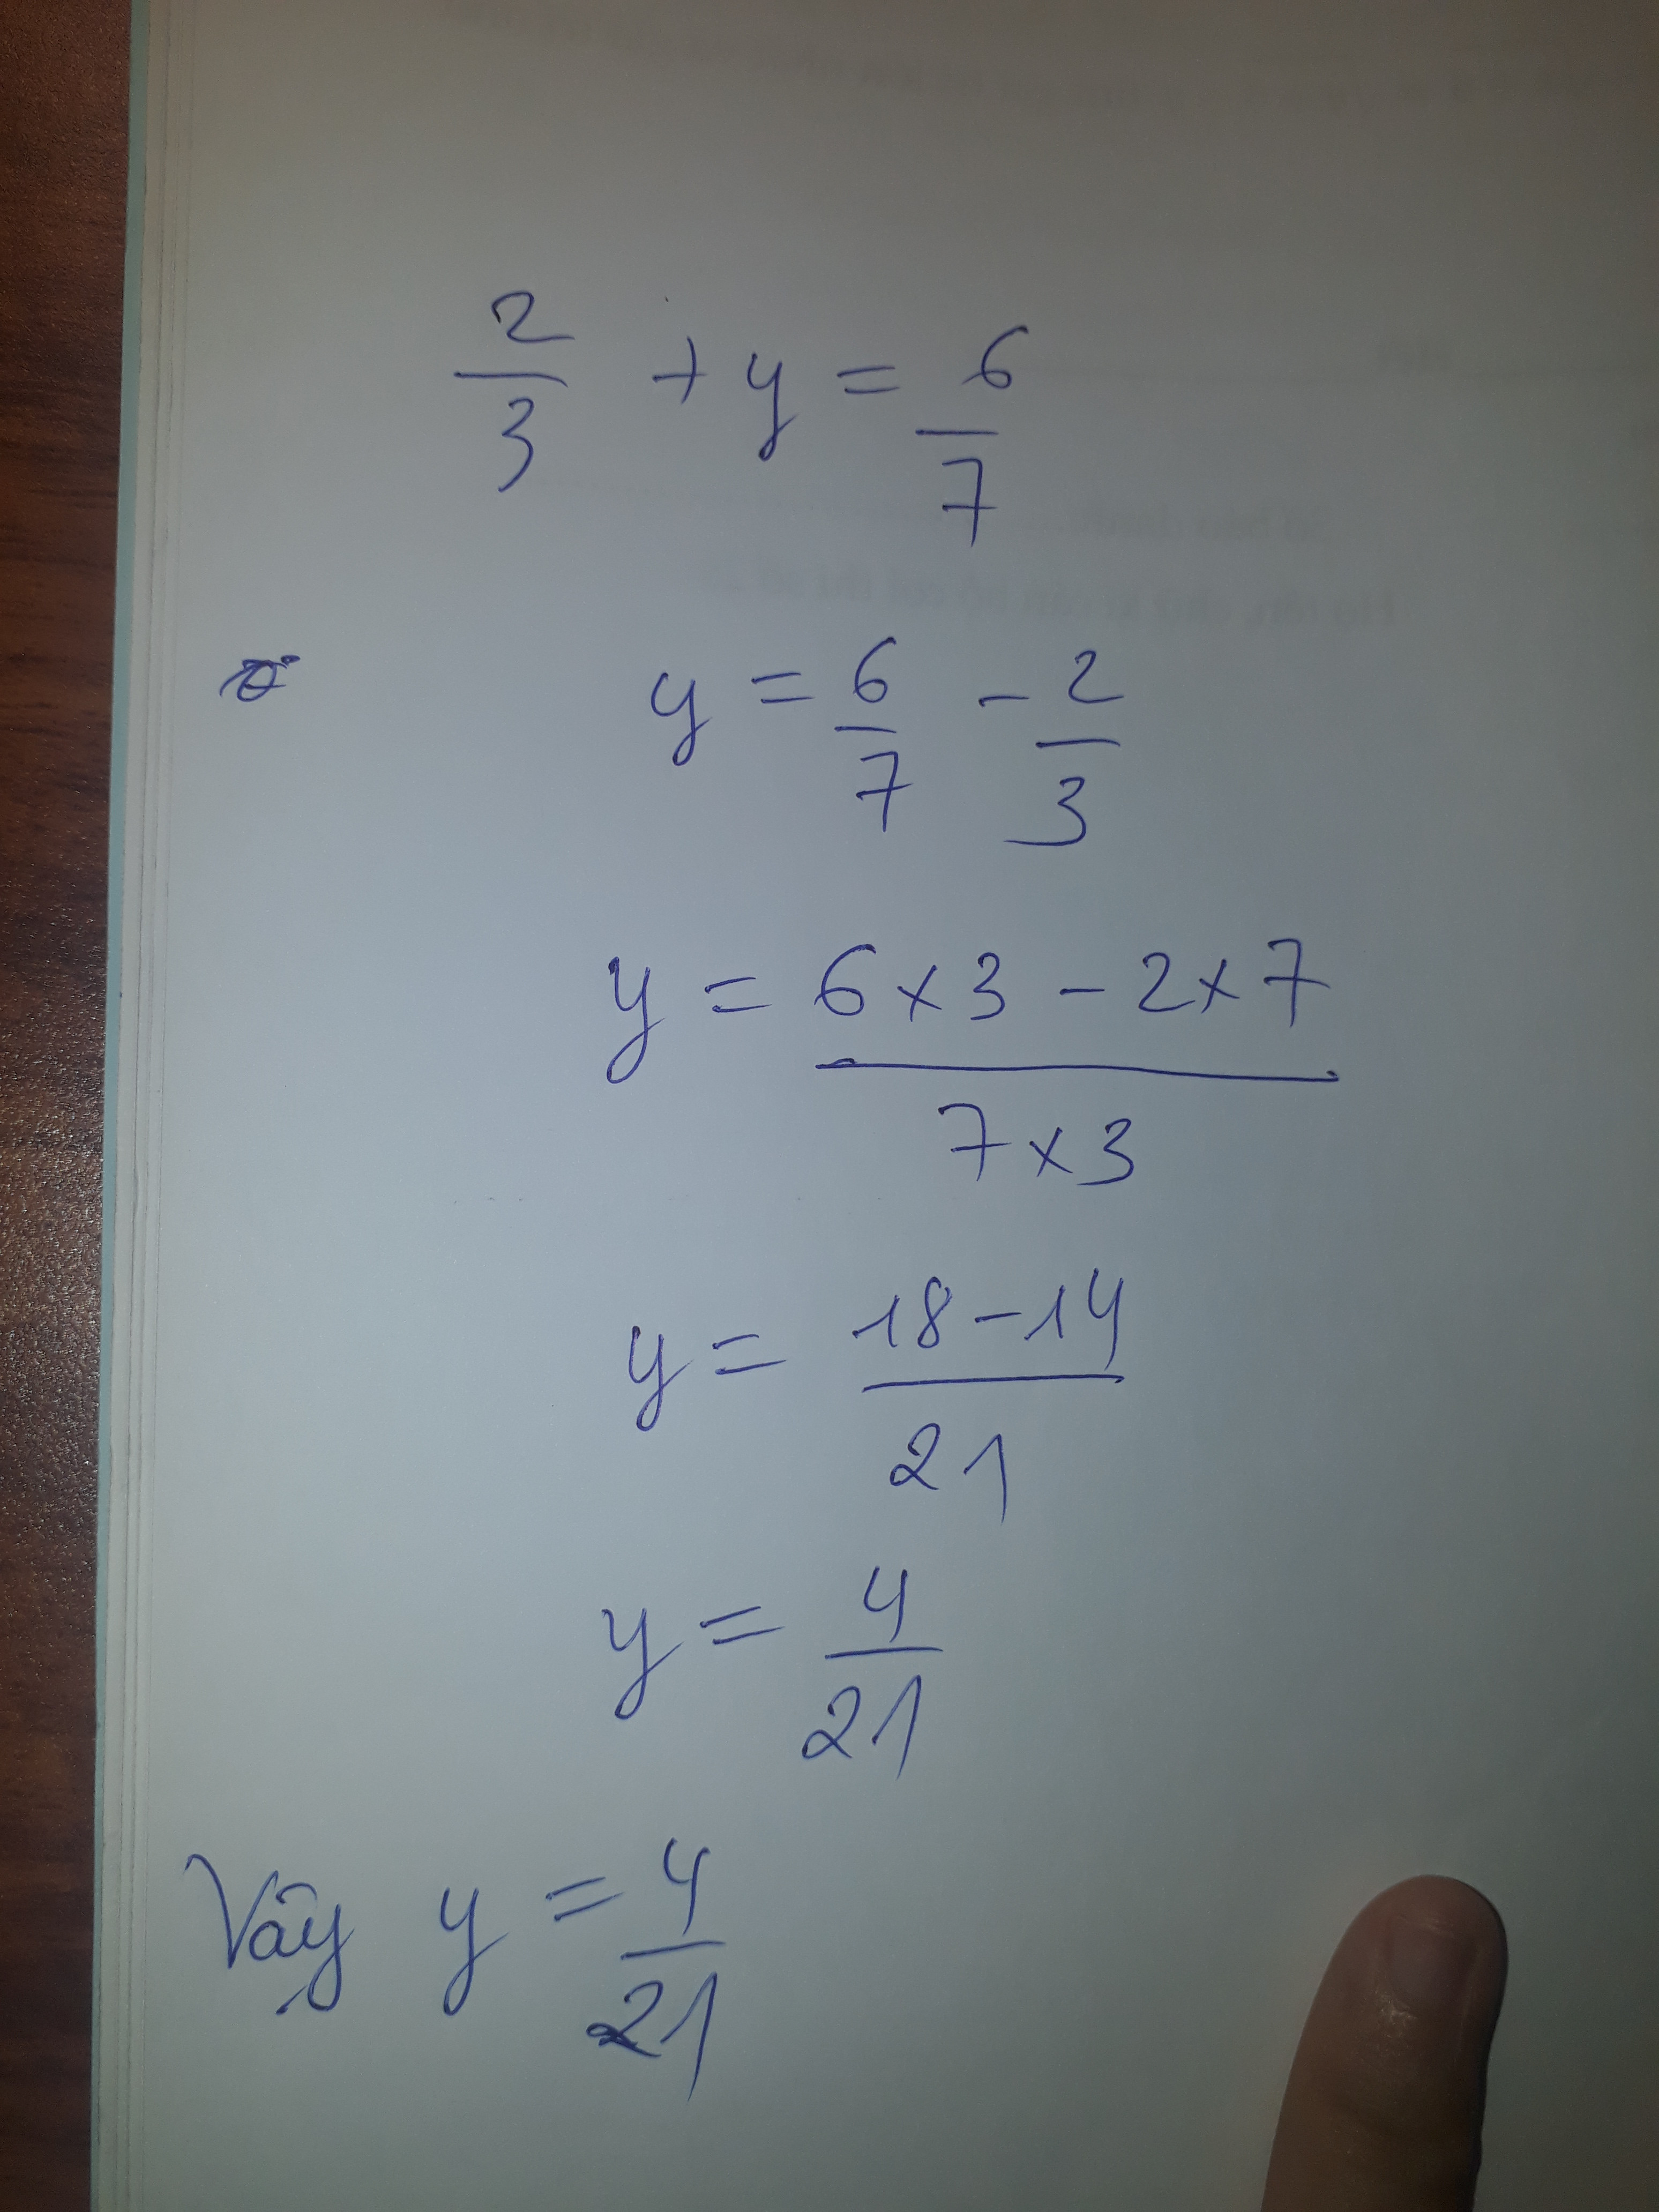 2/3 + y = 6/7
y = 6/7 - 2/3
y = (6 x 3 - 2 x 7)/(7 x 3)
y = (18 - 14)/21
y = 4/21
Vậy y = 4/21